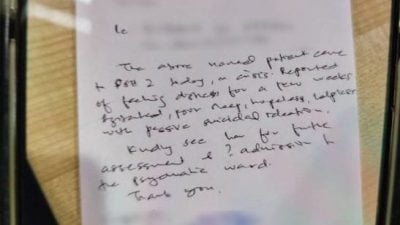 Re
The above named patient came
to 2 today, in crisis. Reported
of feeling for a few weeks
agitated, poor sleep, hopeless, helpless
with passive suicidal ideation.
Kindly see her for further
assessment & ? admission to
the psychiatric ward.
Thank you.